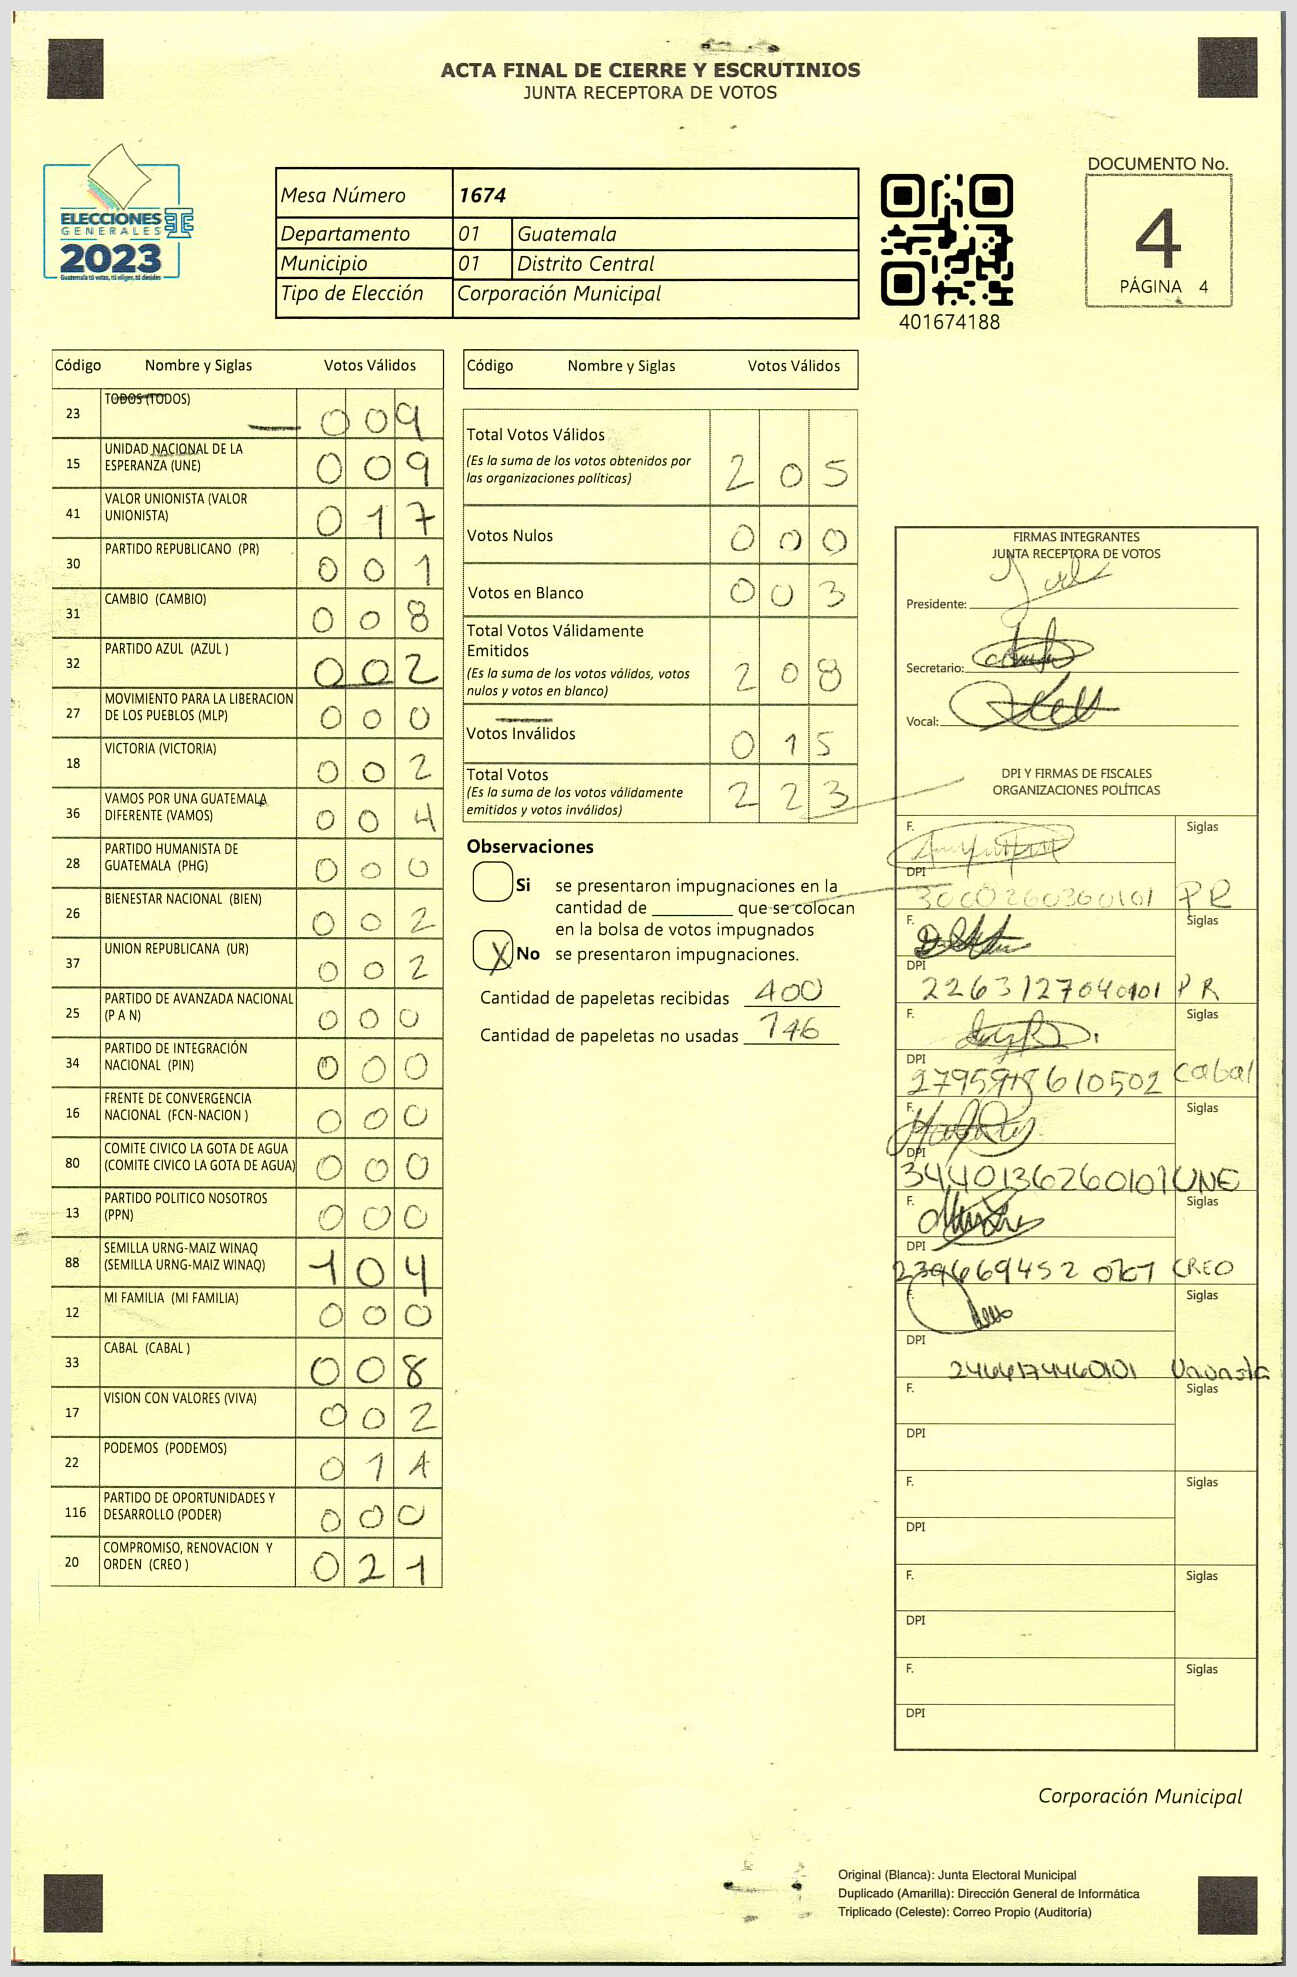 ACTA FINAL DE CIERRE Y ESCRUTINIOS
JUNTA RECEPTORA DE VOTOS
ELECCIONES
GENERALES
2023
Guatemala tú votas, tú eliges, tú decides
Mesa Número 1674
Departamento 01 Guatemala
Municipio 01 Distrito Central
Tipo de Elección Corporación Municipal
401674188
DOCUMENTO No.
4
PÁGINA 4
Código Nombre y Siglas Votos Válidos
23 TODOS (TODOS) 0 0 9
15 UNIDAD NACIONAL DE LA
ESPERANZA (UNE) 0 0 9
41 VALOR UNIONISTA (VALOR
UNIONISTA) 0 1 7
30 PARTIDO REPUBLICANO (PR) 0 0 1
31 CAMBIO (CAMBIO) 0 0 8
32 PARTIDO AZUL (AZUL ) 0 0 2
27 MOVIMIENTO PARA LA LIBERACION
DE LOS PUEBLOS (MLP) 0 0 0
18 VICTORIA (VICTORIA) 0 0 2
36 VAMOS POR UNA GUATEMALA
DIFERENTE (VAMOS) 0 0 4
28 PARTIDO HUMANISTA DE
GUATEMALA (PHG) 0 0 0
26 BIENESTAR NACIONAL (BIEN) 0 0 2
37 UNION REPUBLICANA (UR) 0 0 2
25 PARTIDO DE AVANZADA NACIONAL
(P A N) 0 0 0
34 PARTIDO DE INTEGRACIÓN
NACIONAL (PIN) 0 0 0
16 FRENTE DE CONVERGENCIA
NACIONAL (FCN-NACION ) 0 0 0
80 COMITE CIVICO LA GOTA DE AGUA
(COMITE CIVICO LA GOTA DE AGUA) 0 0 0
13 PARTIDO POLITICO NOSOTROS
(PPN) 0 0 0
88 SEMILLA URNG-MAIZ WINAQ
(SEMILLA URNG-MAIZ WINAQ) 1 0 4
12 MI FAMILIA (MI FAMILIA) 0 0 0
33 CABAL (CABAL ) 0 0 8
17 VISION CON VALORES (VIVA) 0 0 2
22 PODEMOS (PODEMOS) 0 1 4
116 PARTIDO DE OPORTUNIDADES Y
DESARROLLO (PODER) 0 0 0
20 COMPROMISO, RENOVACION Y
ORDEN (CREO ) 0 2 1
Código Nombre y Siglas Votos Válidos
Total Votos Válidos
(Es la suma de los votos obtenidos por
las organizaciones políticas) 2 0 5
Votos Nulos 0 0 0
Votos en Blanco 0 0 3
Total Votos Válidamente
Emitidos
(Es la suma de los votos válidos, votos
nulos y votos en blanco) 2 0 8
Votos Inválidos 0 1 5
Total Votos
(Es la suma de los votos válidamente
emitidos y votos inválidos) 2 2 3
Observaciones
Si se presentaron impugnaciones en la
cantidad de ________ que se colocan
en la bolsa de votos impugnados
X No se presentaron impugnaciones.
Cantidad de papeletas recibidas 400
Cantidad de papeletas no usadas 746
FIRMAS INTEGRANTES
JUNTA RECEPTORA DE VOTOS
Presidente:
Secretario:
Vocal:
DPI Y FIRMAS DE FISCALES
ORGANIZACIONES POLÍTICAS
F. Siglas
DPI
3000260300101 PR
F. Siglas
DPI
2263127040101 PR
F. Siglas
DPI
Cabal
F. Siglas
DPI
3440136260101 UNE
F. Siglas
DPI
CREO
F. Siglas
DPI
2466174460101 Unionista
F. Siglas
DPI
F. Siglas
DPI
F. Siglas
DPI
F. Siglas
DPI
Corporación Municipal
Original (Blanca): Junta Electoral Municipal
Duplicado (Amarilla): Dirección General de Informática
Triplicado (Celeste): Correo Propio (Auditoría)